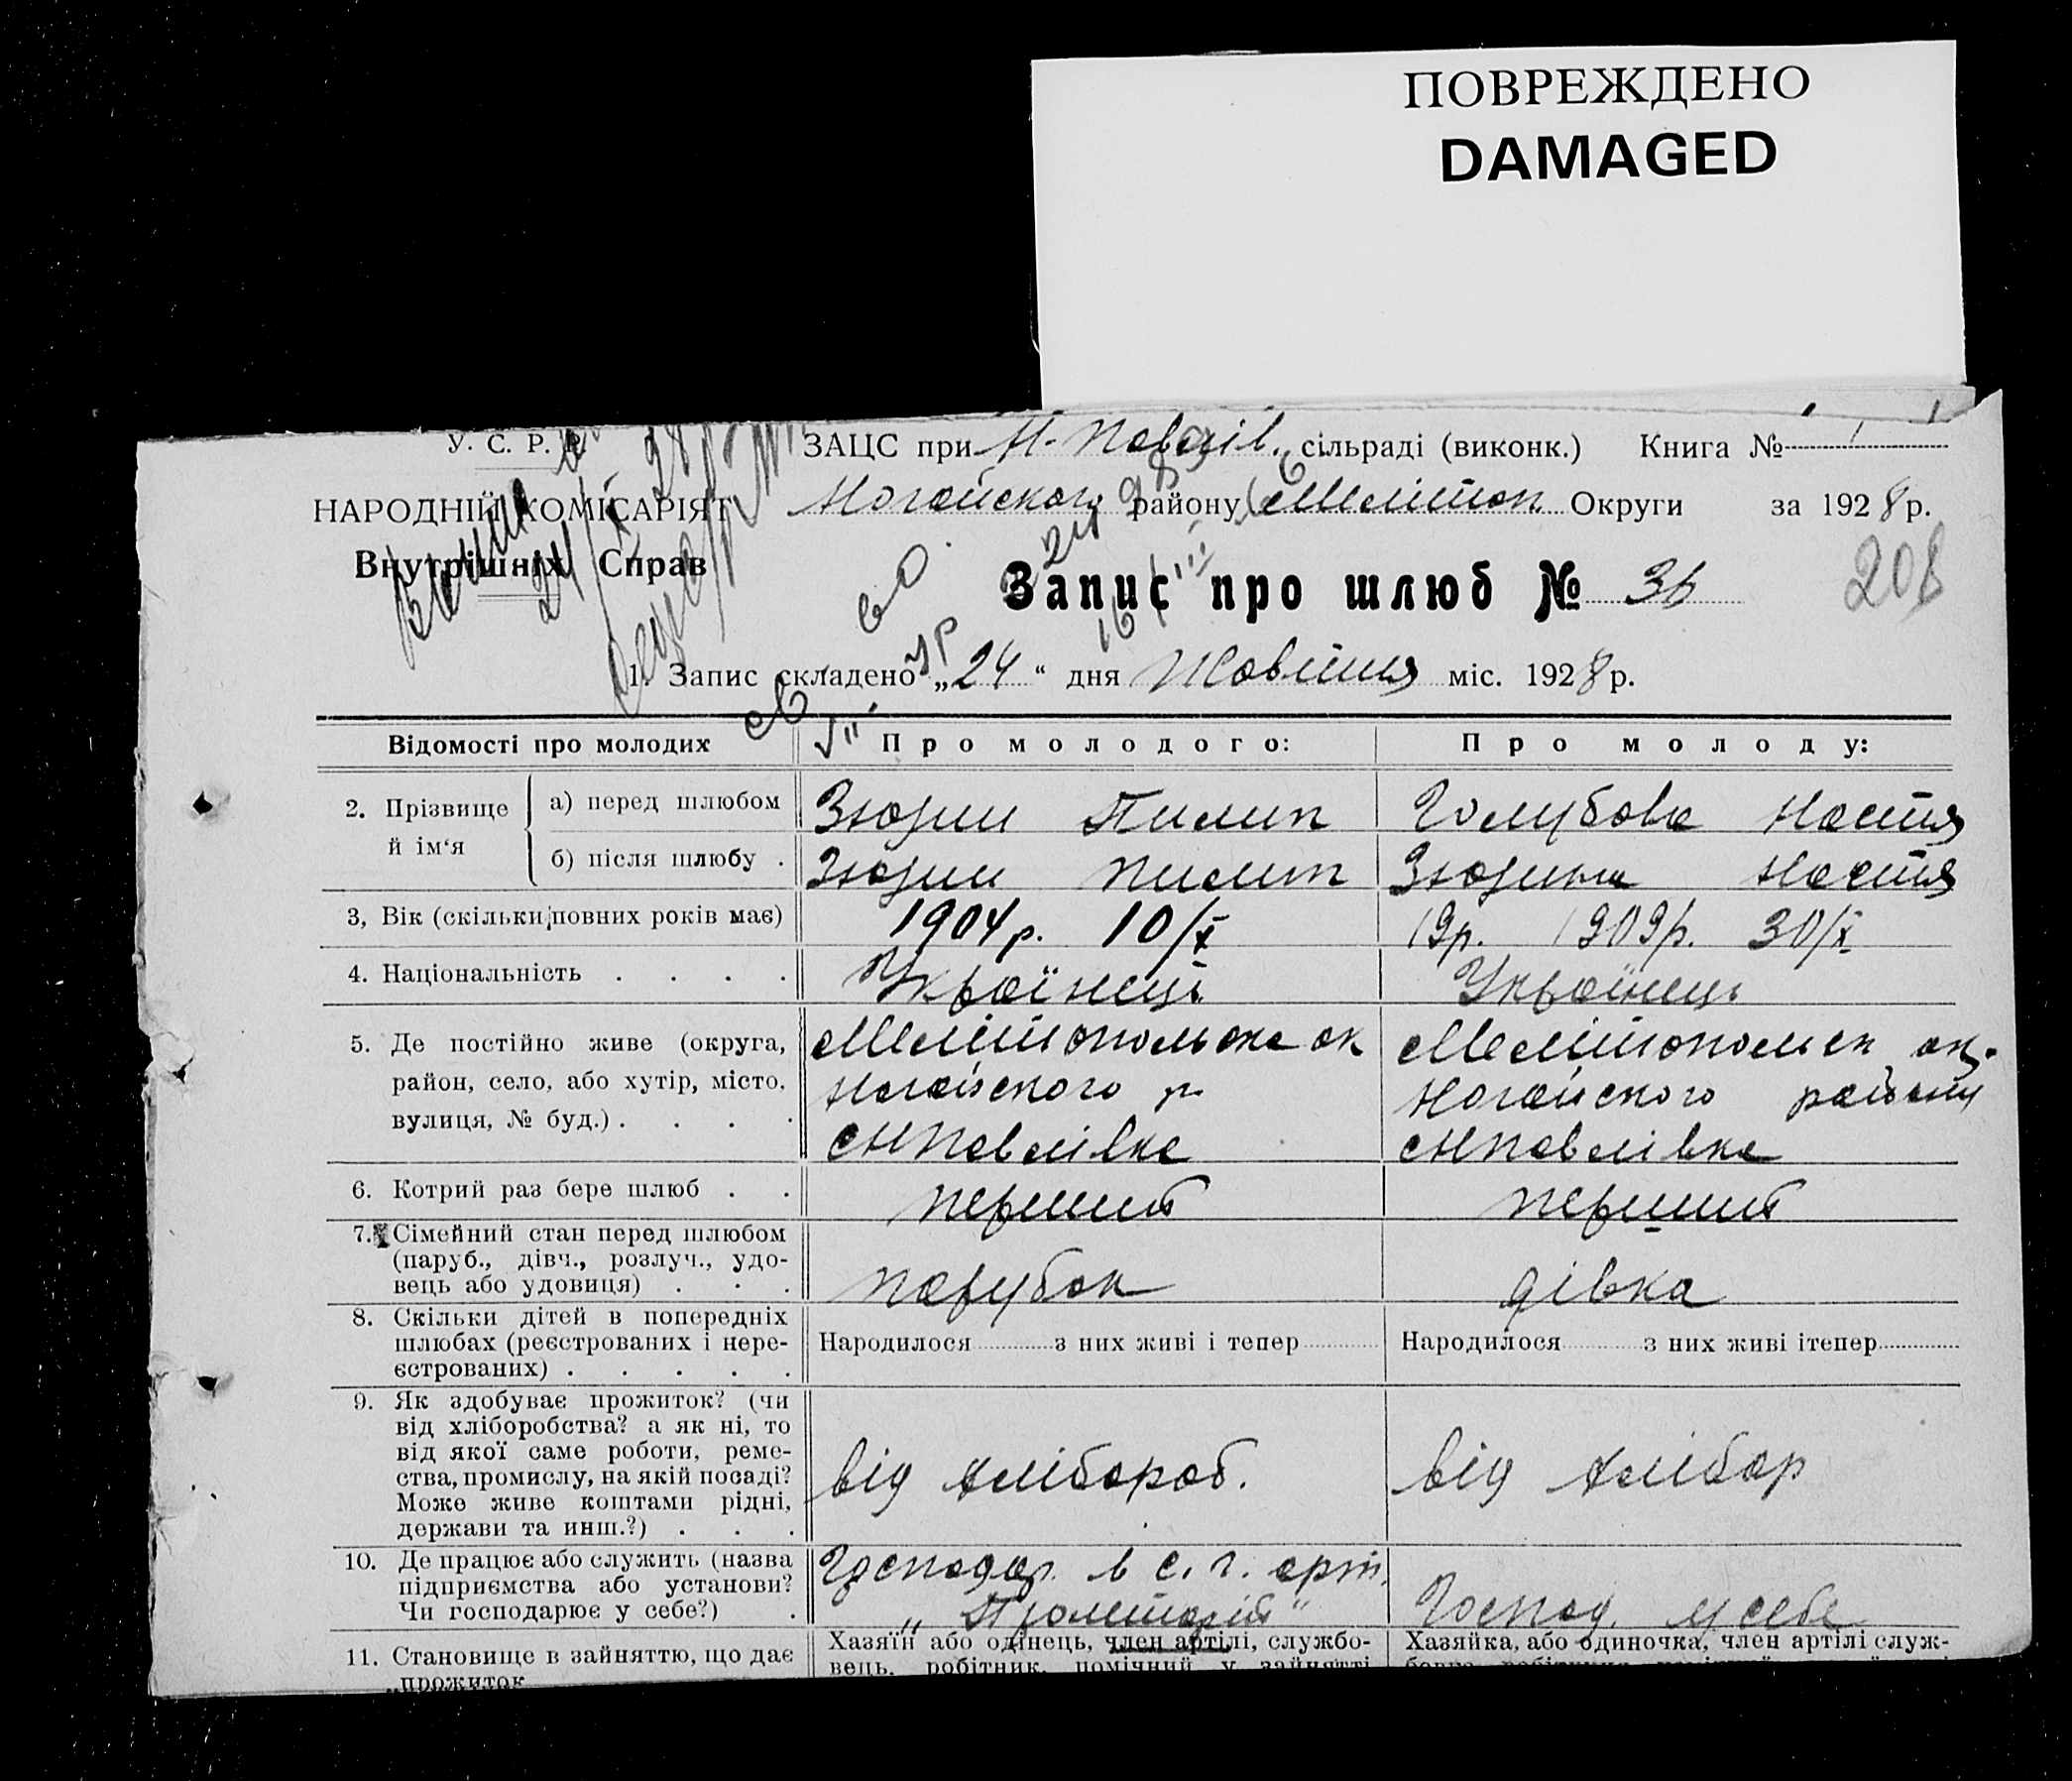 ПОВРЕЖДЕНО
DAMAGED
У. С. Р. Р.
НАРОДНІЙ КОМІСАРІЯТ
Внутрішніх Справ
ЗАЦС при Н-Павлів. сільраді (виконк.) Книга № 1
Ногайского району Меліитоп Округи за 1928 р.
Запис про шлюб № 36
208
1. Запис складено „24“ дня Жовтня міс. 1928 р.
Відомості про молодих Про молодого: Про молоду:
2. Прізвище й ім‘я
а) перед шлюбом Зюзин Пилип Голубова Настя
б) після шлюбу . Зюзин Пилип Зюзина Настя
3, Вік (скільки повних років має) 1904 р. 10/X 19р. 1909р. 30/X
4. Національність . . . . Українець Українець
5. Де постійно живе (округа,
район, село, або хутір, місто,
вулиця, № буд.) . . . .
Мелітопольска ок
Ногайского р
с Н Павлівка
Мелітопольск ок.
Ногайского району
с Н Павлівка
6. Котрий раз бере шлюб . . перший перший
7. Сімейний стан перед шлюбом
(паруб., дівч., розлуч., удо-
вець або удовиця) . . .
парубок дівка
8. Скільки дітей в попередніх
шлюбах (реєстрованих і нере-
єстрованих) . . . . .
Народилося з них живі і тепер Народилося з них живі ітепер
9. Як здобуває прожиток? (чи
від хліборобства? а як ні, то
від якої саме роботи, реме-
ства, промислу, на якій посаді?
Може живе коштами рідні,
держави та инш.?) . . .
від хлібороб. від хлібор
10. Де працює або служить (назва
підприємства або установи?
Чи господарює у себе?) .
Господар. в с. г. арт.
„Пролетарій“
Господ. у себе
11. Становище в зайняттю, що дає
прожиток
Хазяїн або одінець, член артілі, службо-
вець, робітник, помічний у зайнятті
Хазяйка, або одиночка, член артілі служ-